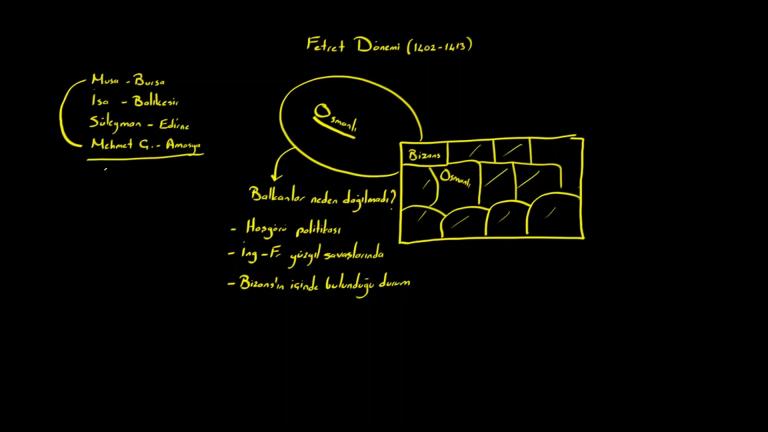 Fetret Dönemi (1402-1413)
Musa - Bursa
İsa - Balıkesir
Süleyman - Edirne
Mehmet Ç. - Amasya
Osmanlı
Bizans
Osmanlı
Balkanlar neden dağılmadı?
- Hoşgörü politikası
- İng - Fr yüzyıl savaşlarında
- Bizans'ın içinde bulunduğu durum